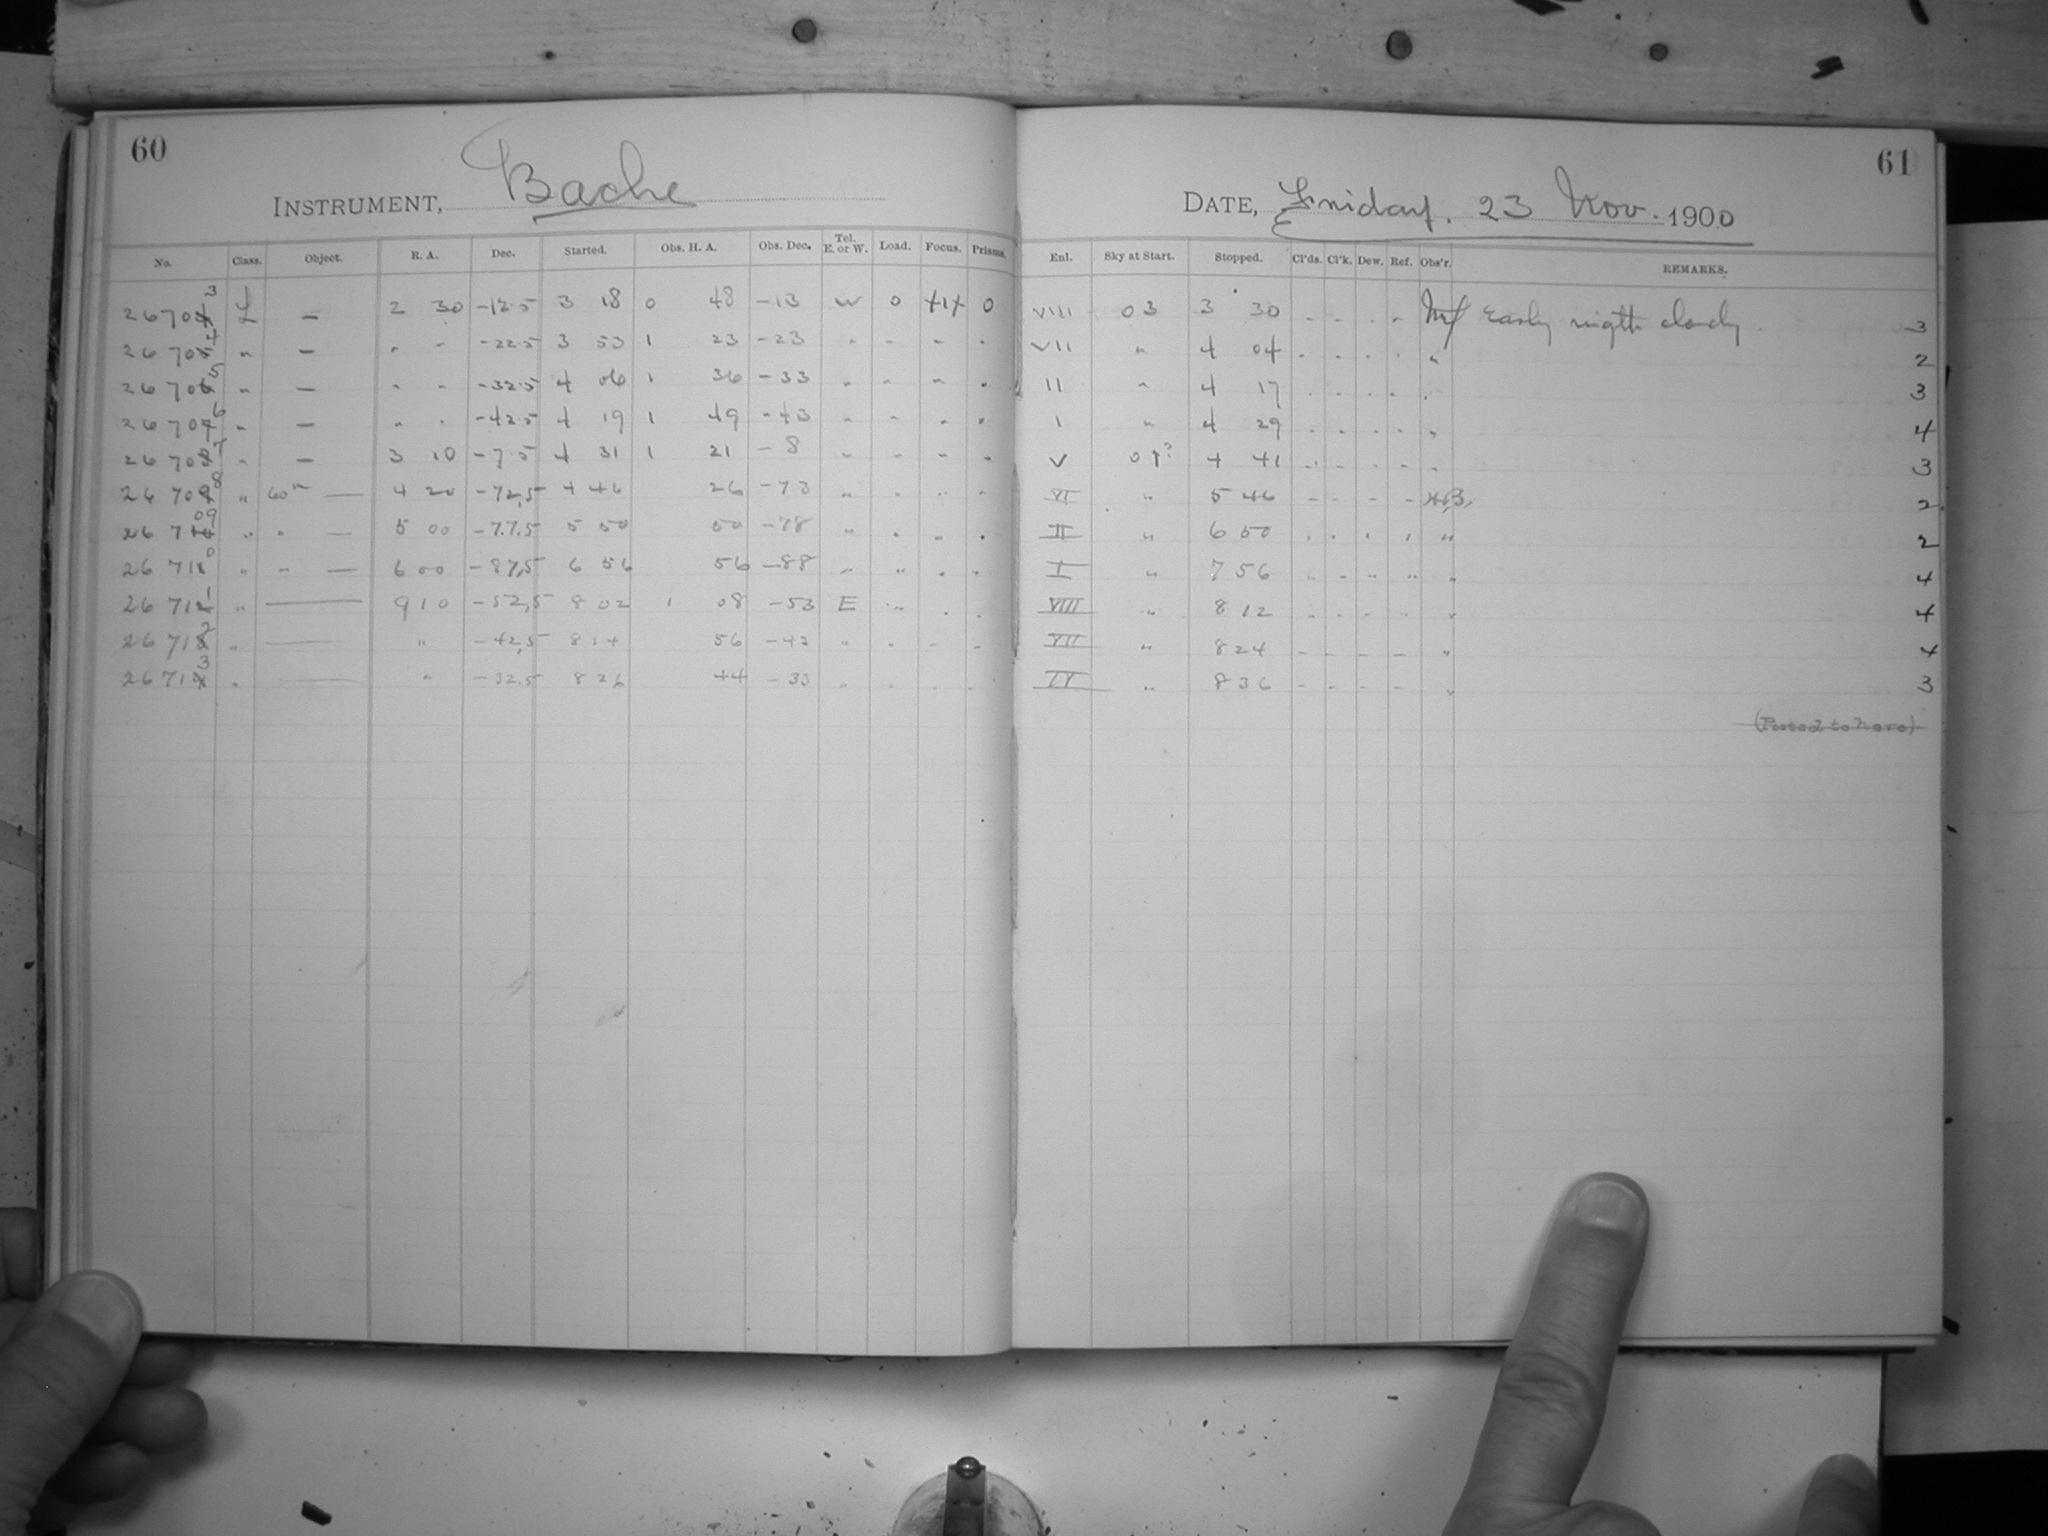 60
INSTRUMENT, Bache
No. Class. Object. R. A. Dec. Started. Obs. H. A. Obs. Dec. Tel. E. or W. Load. Focus. Prisms.
26703 L — 2 30 -12.5 3 18 0 48 -13 W 0 0
26704 " — " " -22.5 3 53 1 23 -23 " " " "
26705 " — " " -32.5 4 06 1 36 -33 " " " "
26706 " — " " -42.5 4 19 1 49 -43 " " " "
26707 " — 3 10 -7.5 4 31 1 21 -8 " " " "
26708 " 60m — 4 20 -72,5 4 46 26 -73 " " " "
26709 " " — 5 00 -77.5 5 50 50 -78 " " " "
26710 " " — 6 00 -87,5 6 56 56 -88 " " " "
26711 " — 9 10 -52,5 8 02 1 08 -53 E " " "
26712 " — " -42,5 8 14 56 -43 " " " "
26713 " — " -32.5 8 26 44 -33 " " " "
61
DATE, Friday. 23 Nov. 1900
Enl. Sky at Start. Stopped. Cl'ds. Cl'k. Dew. Ref. Obs'r. REMARKS.
VIII 03 3 30 " " " " Early nigth cloudy. 3
VII " 4 04 " " " " " 2
II " 4 17 " " " " " 3
I " 4 29 " " " " " 4
V 01? 4 41 " " " " " 3
VI " 5 46 " " " " 2
II " 6 50 " " " " " 2
I " 7 56 " " " " " 4
VIII " 8 12 " " " " " 4
VII " 8 24 " " " " " 4
" 8 36 " " " " " 3
(Posted to here)